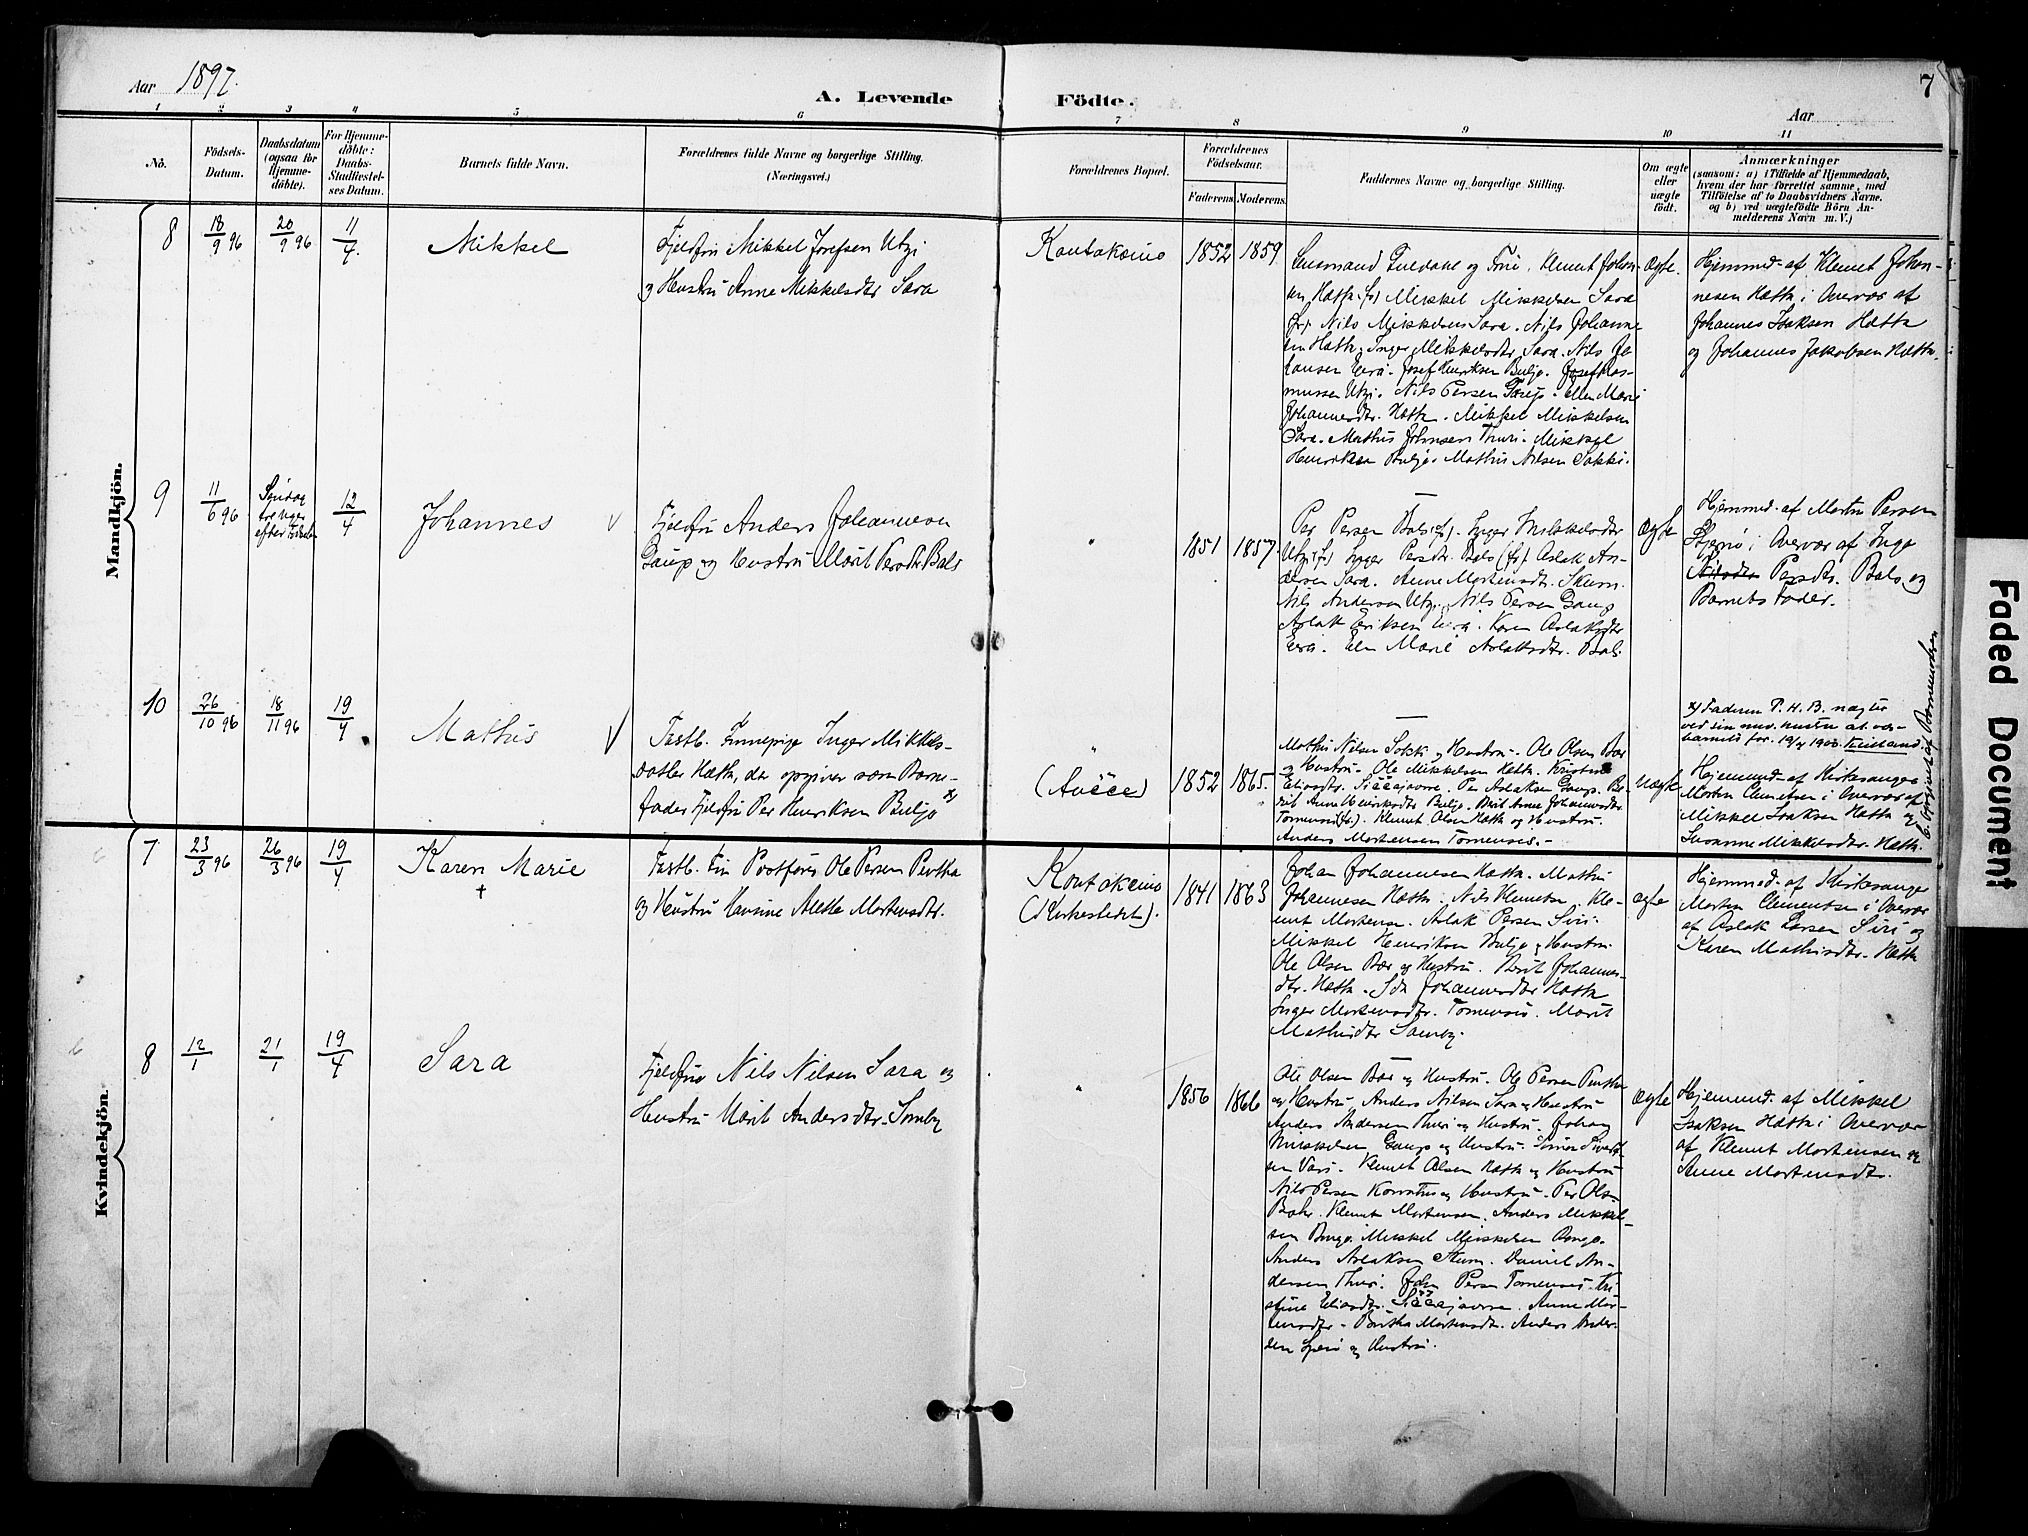 7
Aar 1897.
A. Levende Födte.
Aar
1 2 3 4 5 6 7 8 9 10 11
No.
Födsels-
Datum.
Daabsdatum
(ogsaa for
Hjemme-
döbte).
For Hjemme-
döbte:
Daabs-
Stadfæstel-
ses Datum.
Barnets fulde Navn.
Forældrenes fulde Navne og borgerlige Stilling.
(Næringsvei.)
Forældrenes Bopæl.
Forældrenes
Födselsaar.
Faderens Moderens
Faddernes Navne og borgerlige Stilling.
Om ægte
eller
uægte
födt.
Anmærkninger
(saasom: a) i Tilfælde af Hjemmedaab,
hvem der har forrettet samme, med
Tilföielse af to Daabsvidners Navne.
og b) ved uægtefödte Börn An-
melderens Navn m. V.)
Mandkjön.
8
18/9 96
20/9 96
11/4.
Mikkel
Fjeldfin Mikkel Josefsen Utzi
og Hustru Anne Mikkelsdtr Sara
Kautokeino
1852 1859
Lensmand og Frue. Klemet Johan-
sen Hætta (fr) Mikkel Mikkelsen Sara
(fr). Nils Mikkelsen Sara. Nils Johanne-
sen Hætta, Inger Mikkelsdtr Sara. Nils Jo-
hansen Eira. Josef Henriksen Buljo. Josef Ras-
mussen Utzi. Nils Persen Gaup. Ellen Marie
Johannesdtr. Hætta. Mikkel Mikkelsen
Sara. Mathis Johnsen Thuri. Mikkel
Henriksen Buljo. Mathis Nilsen Sokki.
Ægte.
Hjemmed. af Klemet Johan-
nesen Hætta i Overvær af
Johannes Isaksen Hætta
og Johannes Jakobsen Hætta.
9
11/6 96
Søndag
tre uger
efter Fødselen
12/4
Johannes
Fjeldfin Anders Johannesen
Gaup og Hustru Marit Persdtr Bals
"
1851 1857
Per Persen Bals (f). Inger Mikkelsdtr
Utzi (f) Inger Persdtr. Bals (fr) Aslak An-
dersen Sara. Anne Mortensdtr. Skum.
Nils Andersen Utzi, Nils Persen Gaup
Aslak Eriksen Eira. Karen Aslaksdtr
Eira. Elen Marie Aslaksdtr. Bals.
Ægte
Hjemmed. af Morten Persen
i Overvær af Inge
Nilsdtr Persdtr. Bals og
Barnets Fader.
10
26/10 96
18/11 96
19/4
Mathis
Fastb. Finnepige Inger Mikkels-
datter Hætta, der opgiver som Barne-
fader Fjeldfin Per Henriksen Buljo x)
"
(Avčče)
1852 1865.
Mathis Nilsen Sokk og Hustru. Ole Olsen Bær
og Hustru. Ole Mikkelsen Hætta. Kristine
Eliasdtr. Siččajavrre. Per Aslaksen Gaup. Be-
rit Anne Henriksdtr Buljo. Berit Anne Johannesdtr
Tornensis (fr). Klemet Olsen Hætta og Hustru.
Anders Mortensen Tornensis.-
uægte
x) Faderen P. H. B. nægter
ved sin nuv. hustru at være
barnets far. 19/4 1900.
Hjemmed. af Kirkesanger
Morten Clemetsen i Overvær af
Mikkel Isaksen Hætta og
Susanne Mikkelsdtr. Hætta.
b. opgivet af Barnemoderen
Kvindekjön.
7
23/3 96
26/3 96
19/4
Karen Marie
†
Fastb. Fin Postfører Ole Persen Pentha
og Hustru Hansine Alette Mortensdtr.
Kautokeino
(Kirkestedet).
1841 1863
Johan Johannesen Hætta. Mathis
Johannesen Hætta. Nils Klemetsen. Kle-
met Mortensen. Aslak Persen Siri.
Mikkel Henriksen Buljo og Hustru.
Ole Olsen Bær og Hustru. Berit Johannes-
dtr. Hætta. Ida Johannesdtr Hætta
Inger Mortensdtr. Tornensis. Marit
Mathisdtr Somby.
ægte
Hjemmed. af Kirkesanger
Morten Clementsen i Overvær
af Aslak Persen Siri og
Karen Mathisdtr. Hætta
8
12/1
21/1
19/4
Sara
Fjeldfin Nils Nilsen Sara og
Hustru Marit Andersdtr. Somby
"
1856 1866
Ole Olsen Bær og Hustru. Ole Persen Pentha
og Hustru Anders Nilsen Sara og Hustru
Anders Andersen Thuri og Hustru. Johan
Mikkelsen Gaup og Hustru. Simon Sivert-
sen Vars. Klemet Olsen Hætta og Hustru
Nils Persen og Hustru. Per Olsen
Bæhr. Klemet Mortensen. Anders Mikkel-
sen Bongo. Mikkel Mikkelsen Bongo.
Anders Aslaksen Skum. Daniel An-
dersen Thuri. John Persen Tornensis. Kri-
stine Eliasdtr. Siččajavrre. Anne Mor-
tensdtr. Mortensdtr. Anders Ander-
sen og Hustru.
ægte
Hjemmed. af Mikkel
Isaksen Hætta i Overvær
af Klemet Mortensen og
Anne Mortensdtr.
Faded Document